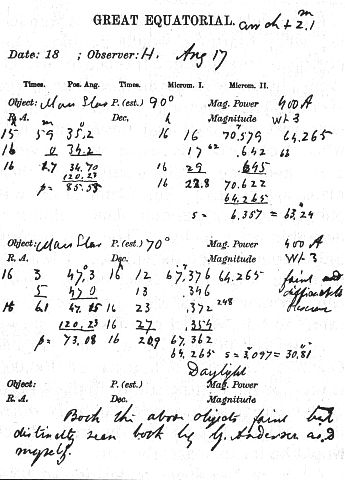 GREAT EQUATORIAL. and ch + 2.1 m
Date: 18 ; Observer: H. Aug 17
Times. Pos. Ang. Times. Microm. I. Microm. II.
Object: Mars Star P. (est.) 90° Mag. Power 400 A
R. A. Dec. Magnitude Wt 3
h m h
15 59 35.2 16 16 70.579 64.265
16 0 34.2 17 62 .642 63
16 1.7 34.70 16 29 .645
120.23 16 22.8 70.622
p = 85.53 64.265
s = 6.357 = 63.24
Object: Mars Star P. (est.) 70° Mag. Power 400 A
R. A. Dec. Magnitude Wt 3
16 3 47.3 16 12 67.376 64.265 faint and
5 47.0 13 .346 difficult to
16 6.1 47.15 16 23 .372 248 observe
120.23 16 27 .354
p = 73.08 16 20.9 67.362
64.265 s = 3.097 = 30.81
Daylight
Object: P. (est.) Mag. Power
R. A. Dec. Magnitude
Both the above objects faint but
distinctly seen both by G. Anderson and
myself.